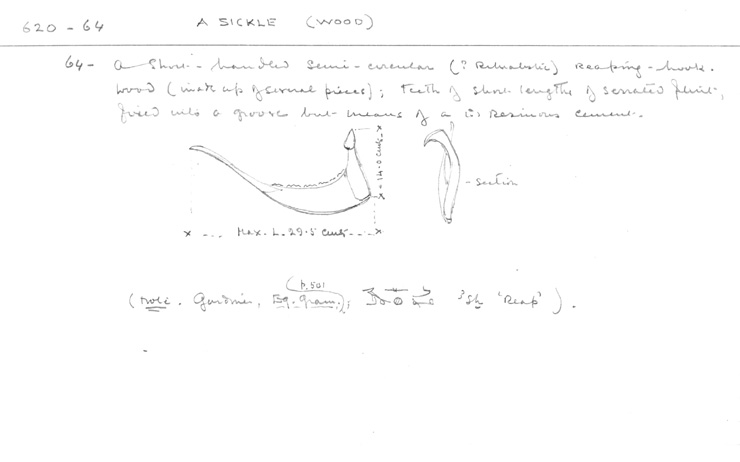 620 - 64
A SICKLE (WOOD)
64 - A Short-handled semi-circular (? Ritualistic) Reaping-hook.
Wood (made up of several pieces); teeth of short lengths of serrated flint,
fixed into a groove but means of a (?) Resinous cement.
x - 14.0 cents - x
- section
x --- Max. L. 29.5 cents --- x
(p. 501
(Note. Gardiner, Eg. Gram.); ꜣsẖ 'Reap').